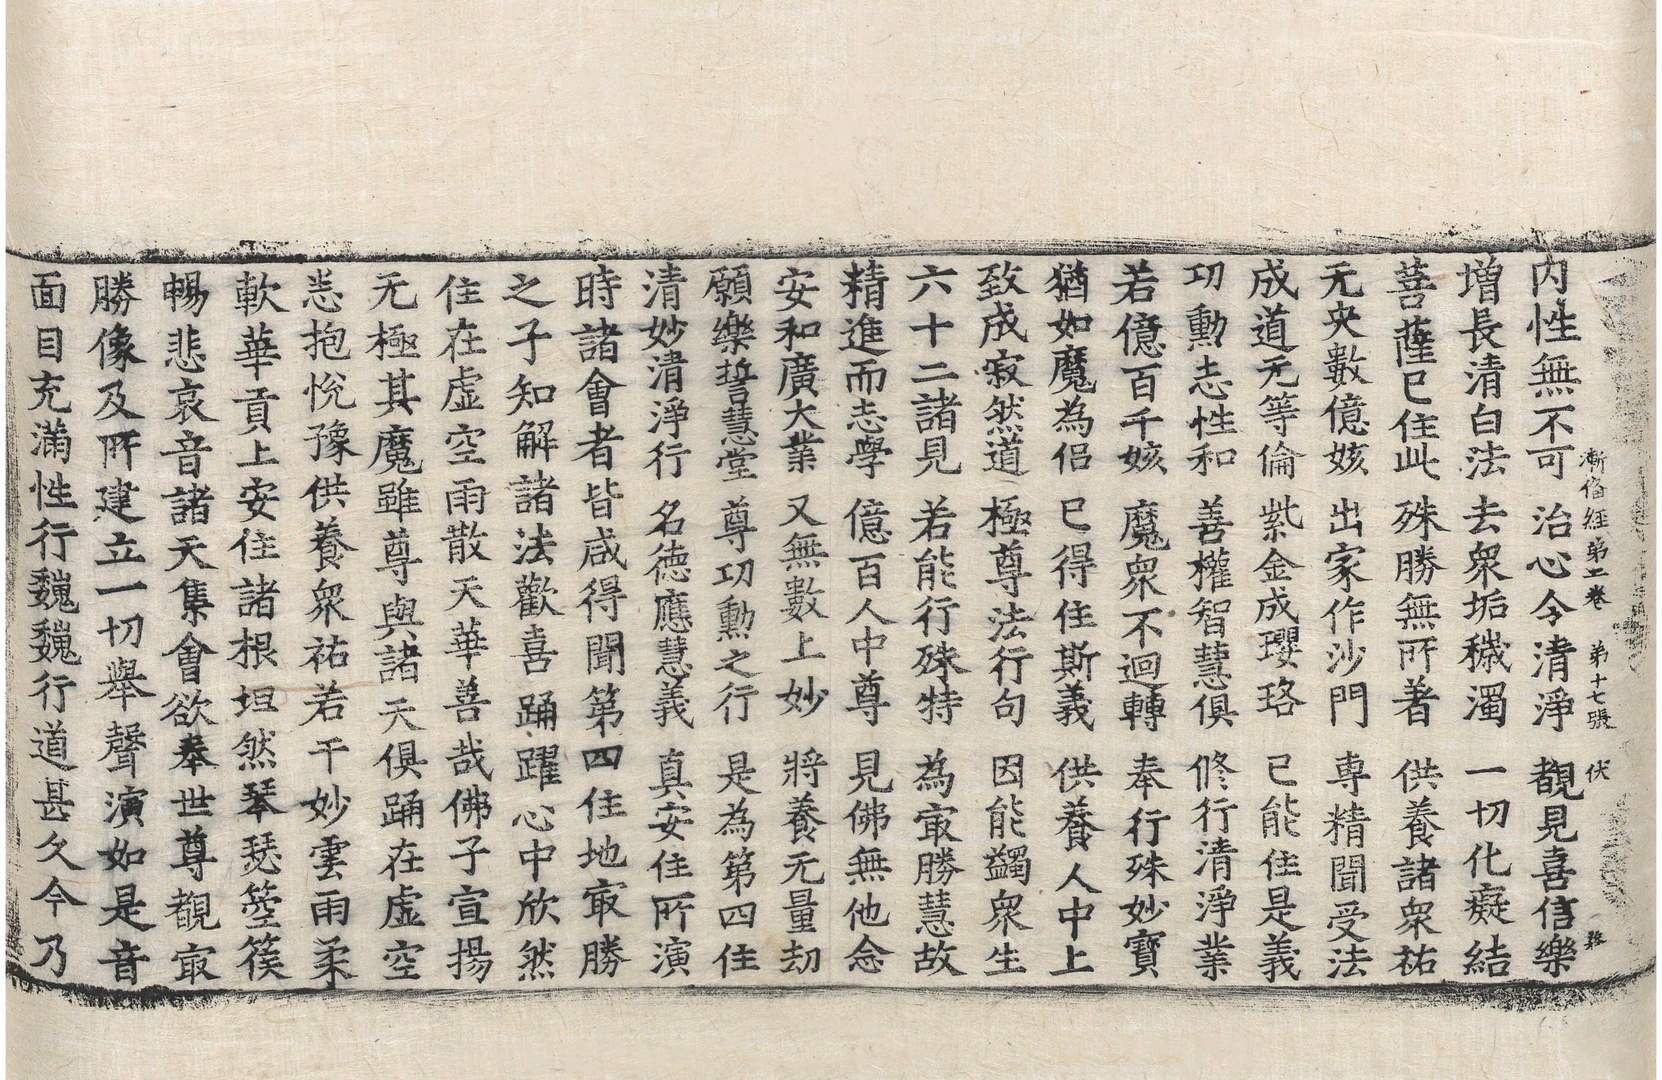 漸俻經第二卷 第十七張 伏
內性無不可 治心令清淨 覩見喜信樂
增長清白法 去衆垢穢濁 一切化癡結
菩薩已住此 殊勝無所著 供養諸衆祐
无央數億姟 出家作沙門 専精聞受法
成道无等倫 紫金成瓔珞 已能住是義
功勳志性和 善權智慧俱 修行清淨業
若億百千姟 魔衆不迴轉 奉行殊妙寶
猶如魔為侣 已得住斯義 供養人中上
致成寂然道 極尊法行句 因能蠲衆生
六十二諸見 若能行殊特 為冣勝慧故
精進而志學 億百人中尊 見佛無他念
安和廣大業 又無數上妙 將養无量劫
願樂誓慧堂 尊功勳之行 是為第四住
清妙清淨行 名德應慧義 真安住所演
時諸會者皆咸得聞第四住地冣勝
之子知解諸法歡喜踊躍心中欣然
住在虛空雨散天華善哉佛子宣揚
无極其魔雖尊與諸天俱踊在虛空
恙抱悅豫供養衆祐若干妙雲雨柔
軟華貢上安住諸根坦然琴瑟箜篌
暢悲哀音諸天集會欲奉世尊覩冣
勝像及所建立一切舉聲演如是音
面目充滿性行巍巍行道甚久今乃